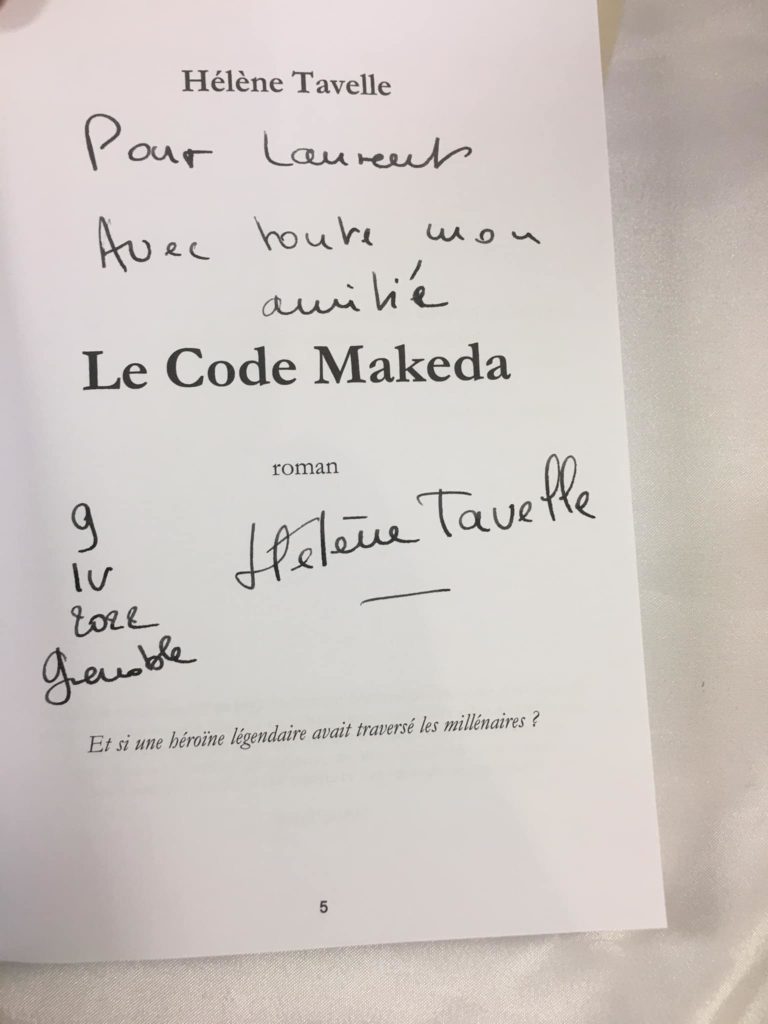 Hélène Tavelle
Pour Laurent
Avec toute mon
amitié
Le Code Makeda
roman
Hélène Tavelle
9
IV
2022
Grenoble
Et si une héroïne légendaire avait traversé les millénaires ?
5